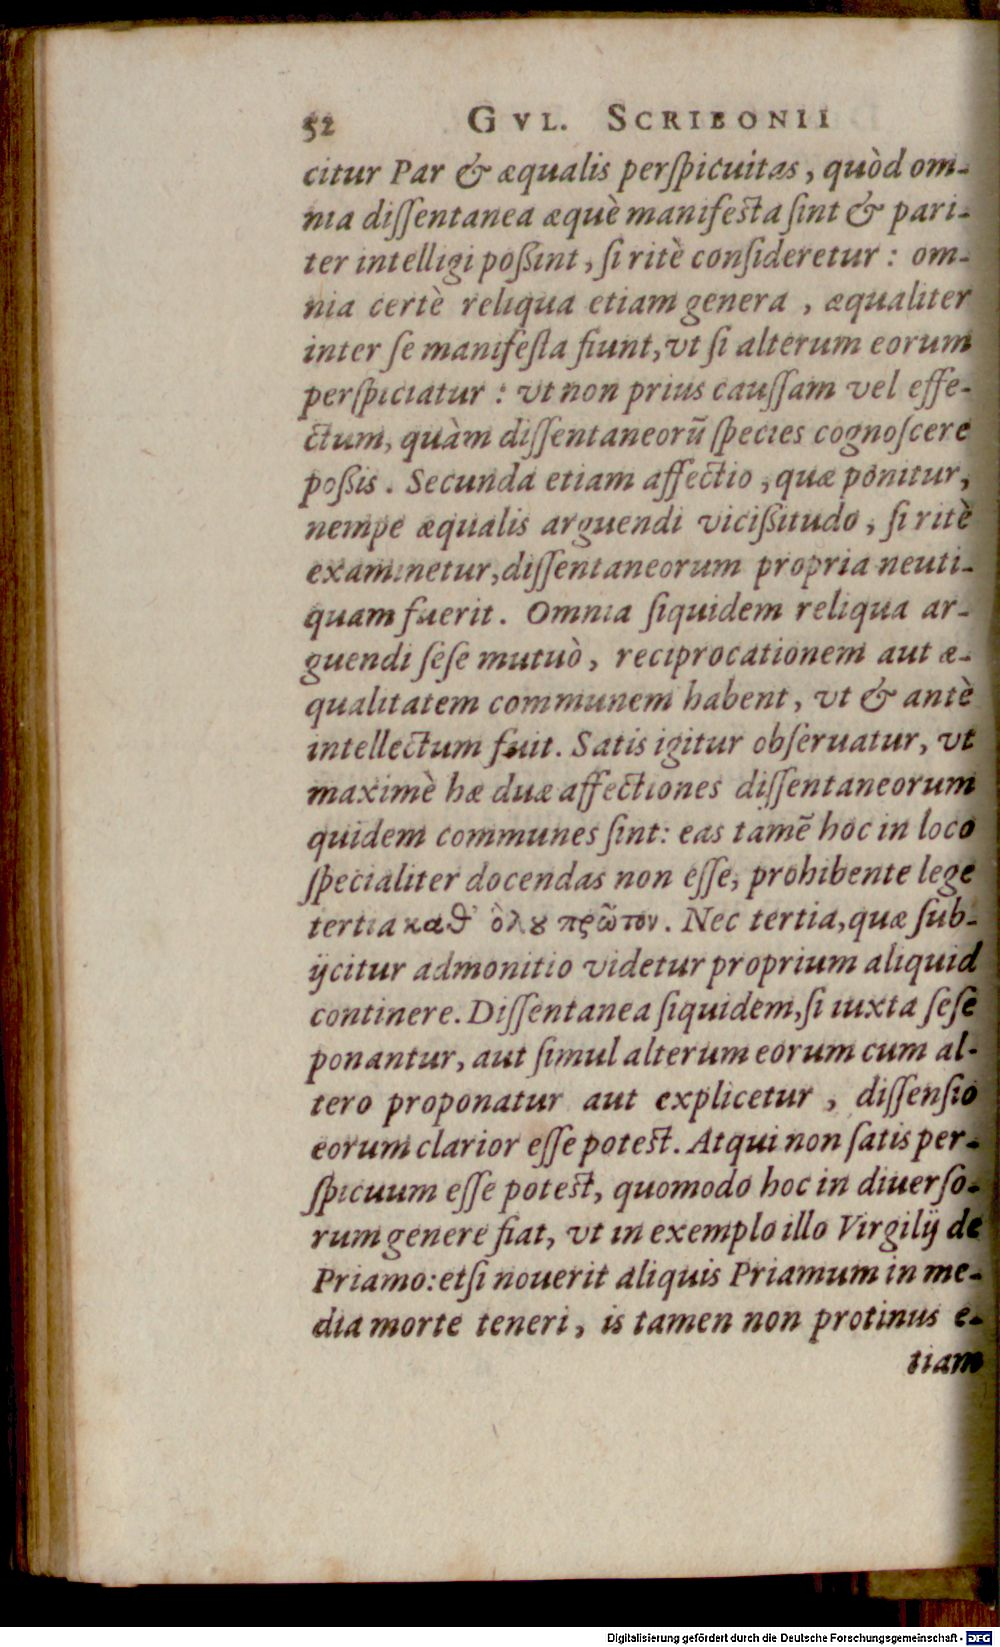 52 GVL. SCRIBONII
citur Par & æqualis perſpicuitas, quòd om-
nia diſſentanea æquè manifesta ſint & pari-
ter intelligi poßint, ſi ritè conſideretur : om-
nia certè reliqua etiam genera , æqualiter
inter ſe manifeſta fiunt, vt ſi alterum eorum
perſpiciatur : vt non prius cauſſam vel effe-
ctum, quàm diſſentaneorũ ſpecies cognoſcere
poßis. Secunda etiam affectio, quæ ponitur,
nempe æqualis arguendi vicißitudo, ſi ritè
examinetur, diſſentaneorum propria neuti-
quam fuerit. Omnia ſiquidem reliqua ar-
guendi ſeſe mutuò, reciprocationem aut æ-
qualitatem communem habent, vt & antè
intellectum fuit. Satis igitur obſeruatur, vt
maximè hæ duæ affectiones diſſentaneorum
quidem communes ſint: eas tamẽ hoc in loco
ſpecialiter docendas non eſſe, prohibente lege
tertia καθ' ὅλου πρῶτον. Nec tertia, quæ ſub-
ijcitur admonitio videtur proprium aliquid
continere. Diſſentanea ſiquidem, ſi iuxta ſeſe
ponantur, aut ſimul alterum eorum cum al-
tero proponatur aut explicetur , diſſenſio
eorum clarior eſſe potest. Atqui non ſatis per-
ſpicuum eſſe potest, quomodo hoc in diuerſo-
rum genere fiat, vt in exemplo illo Virgilij de
Priamo: etſi nouerit aliquis Priamum in me-
dia morte teneri, is tamen non protinus e-
tiam
Digitalisierung gefördert durch die Deutsche Forschungsgemeinschaft - DFG